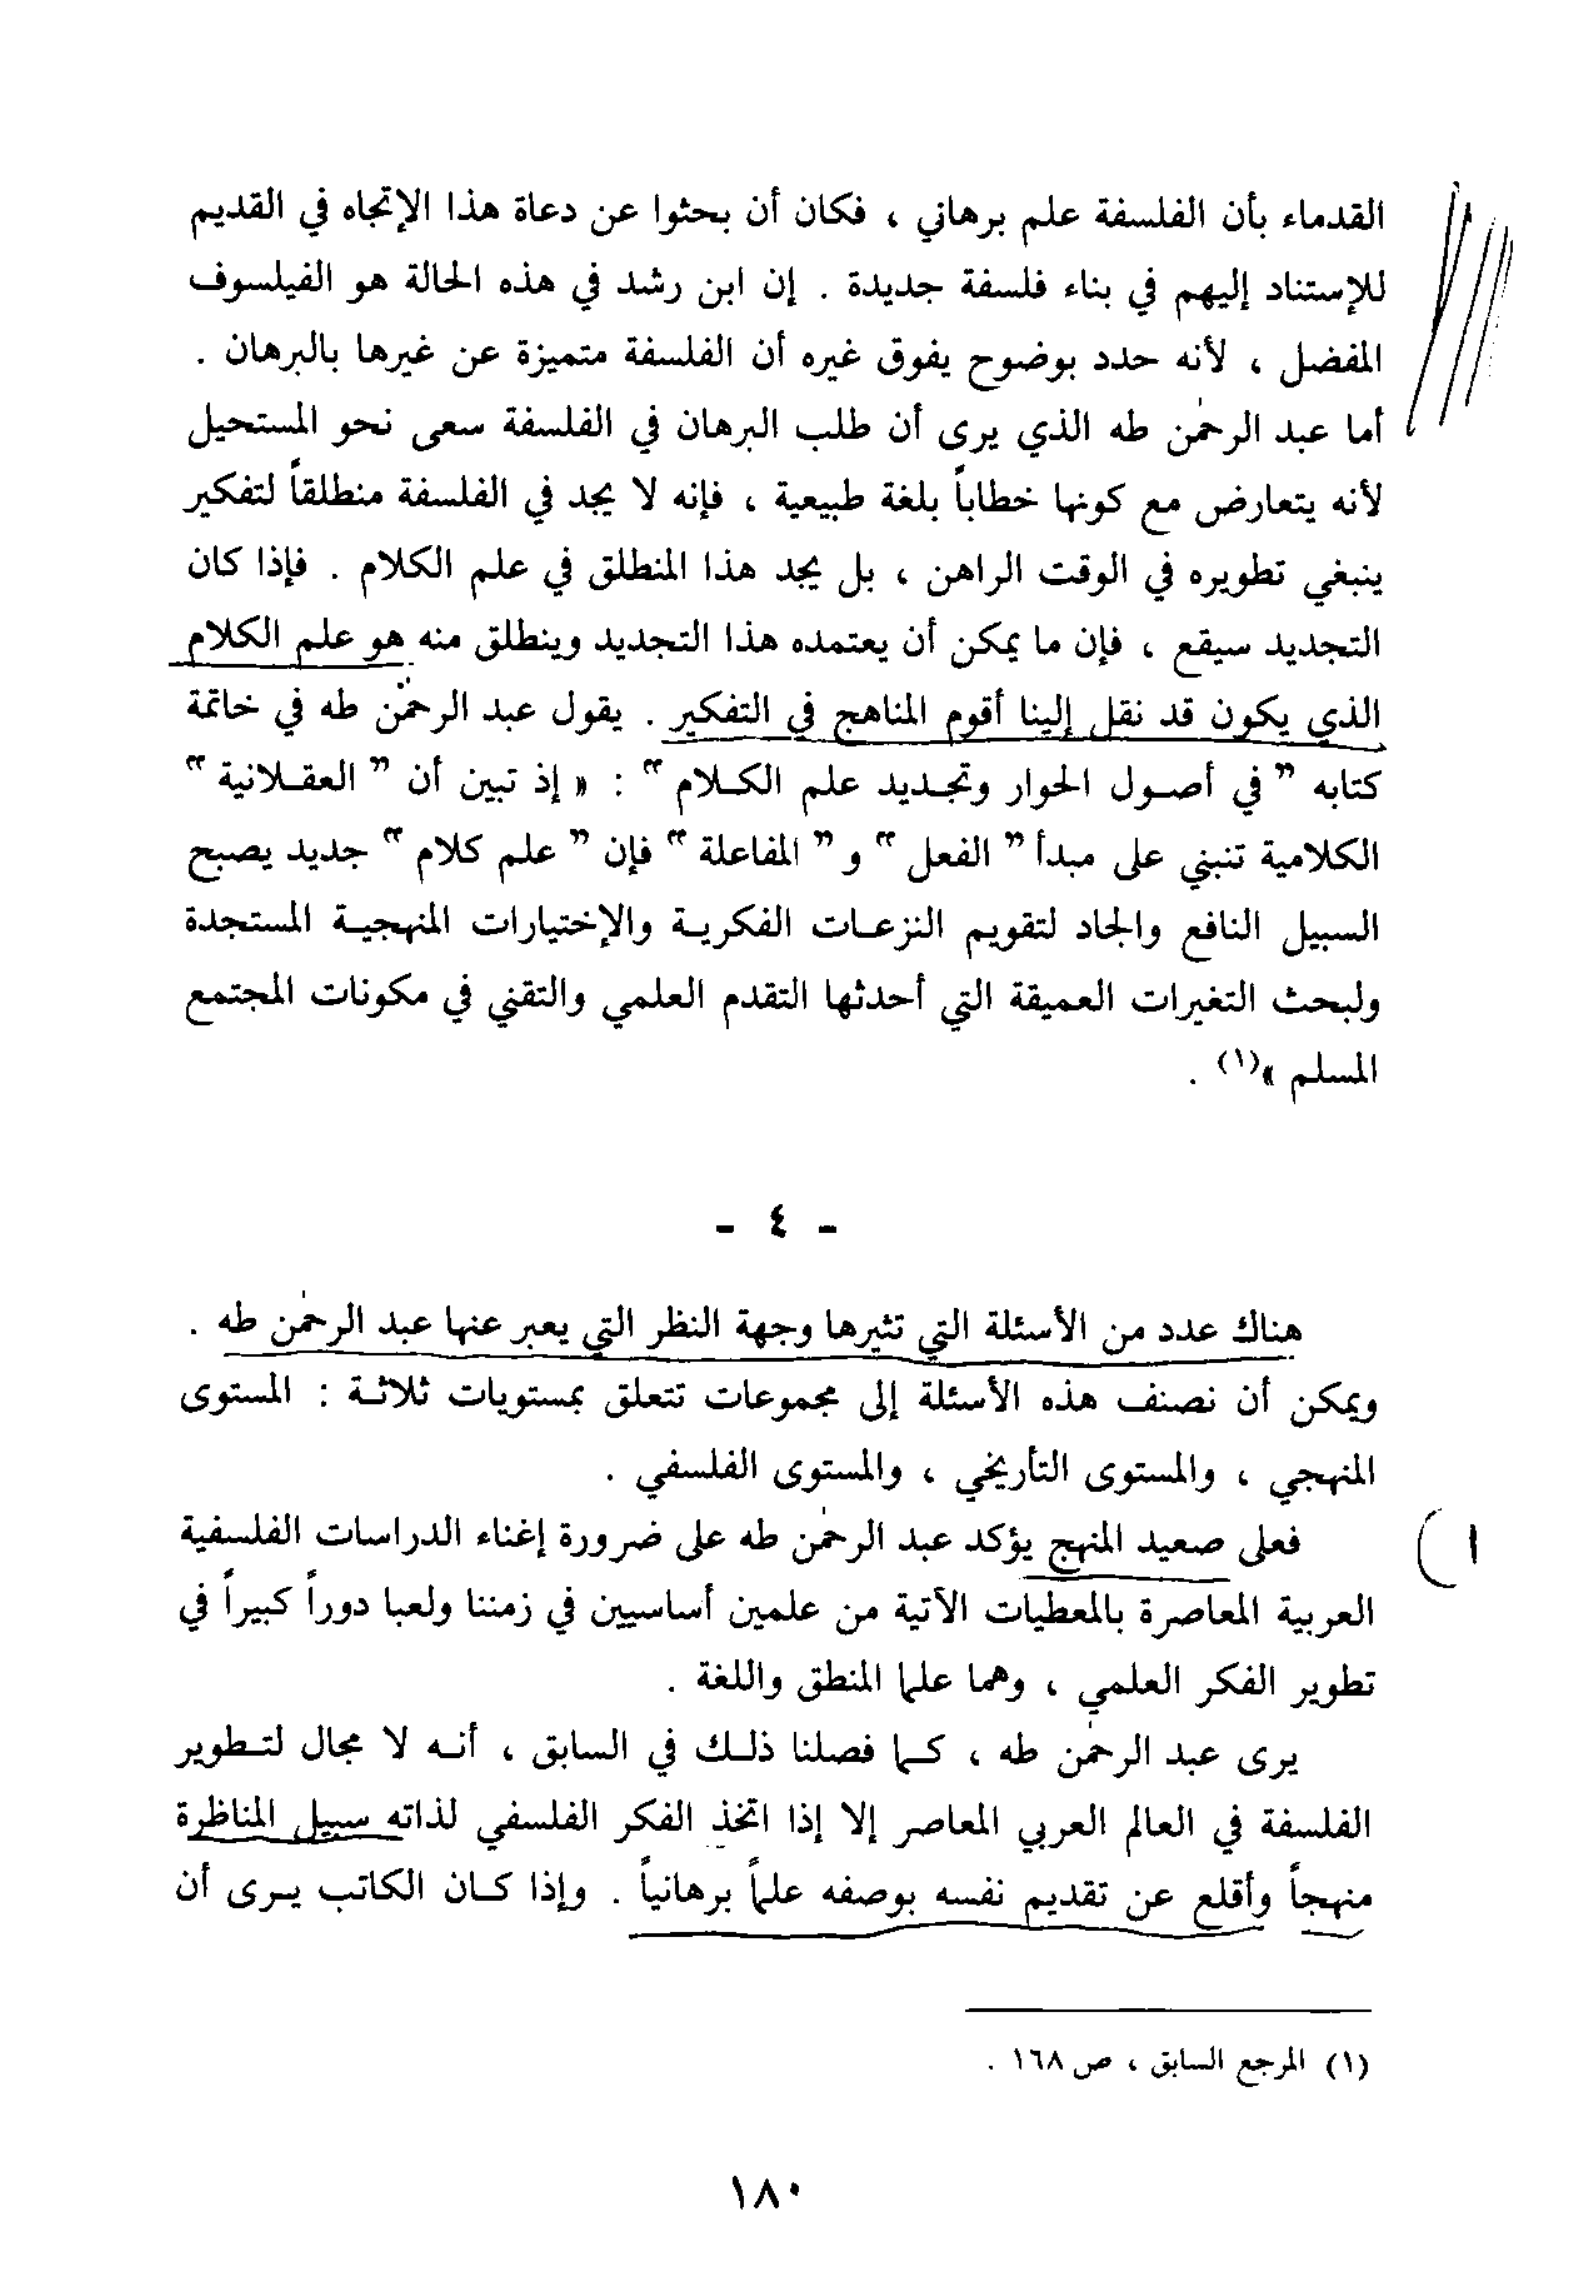 القدماء بأن الفلسفة علم برهاني ، فكان أن بحثوا عن دعاة هذا الإتجاه في القديم
للإستناد إليهم في بناء فلسفة جديدة . إن ابن رشد في هذه الحالة هو الفيلسوف
المفضل ، لأنه حدد بوضوح يفوق غيره أن الفلسفة متميزة عن غيرها بالبرهان .
أما عبد الرحمٰن طه الذي يرى أن طلب البرهان في الفلسفة سعى نحو المستحيل
لأنه يتعارض مع كونها خطاباً بلغة طبيعية ، فإنه لا يجد في الفلسفة منطلقاً لتفكير
ينبغي تطويره في الوقت الراهن ، بل يجد هذا المنطلق في علم الكلام . فإذا كان
التجديد سيقع ، فإن ما يمكن أن يعتمده هذا التجديد وينطلق منه هو علم الكلام
الذي يكون قد نقل إلينا أقوم المناهج في التفكير . يقول عبد الرحمٰن طه في خاتمة
كتابه ” في أصـول الحوار وتجـديد علم الكـلام “ : « إذ تبين أن ” العقـلانية “
الكلامية تنبني على مبدأ ” الفعل “ و ” المفاعلة “ فإن ” علم كلام “ جديد يصبح
السبيل النافع والجاد لتقويم النزعـات الفكريـة والإختيارات المنهجيـة المستجدة
ولبحث التغيرات العميقة التي أحدثها التقدم العلمي والتقني في مكونات المجتمع
المسلم »(١) .
- ٤ -
هناك عدد من الأسئلة التي تثيرها وجهة النظر التي يعبر عنها عبد الرحمٰن طه .
ويمكن أن نصنف هذه الأسئلة إلى مجموعات تتعلق بمستويات ثلاثـة : المستوى
المنهجي ، والمستوى التأريخي ، والمستوى الفلسفي .
١ ) فعلى صعيد المنهج يؤكد عبد الرحمٰن طه على ضرورة إغناء الدراسات الفلسفية
العربية المعاصرة بالمعطيات الآتية من علمين أساسيين في زمننا ولعبا دوراً كبيراً في
تطوير الفكر العلمي ، وهما علما المنطق واللغة .
يرى عبد الرحمٰن طه ، كـما فصلنا ذلـك في السابق ، أنـه لا مجال لتـطوير
الفلسفة في العالم العربي المعاصر إلا إذا اتخذ الفكر الفلسفي لذاته سبيل المناظرة
منهجاً وأقلع عن تقديم نفسه بوصفه علماً برهانياً . وإذا كـان الكاتب يـرى أن
(١) المرجع السابق ، ص ١٦٨ .
١٨٠